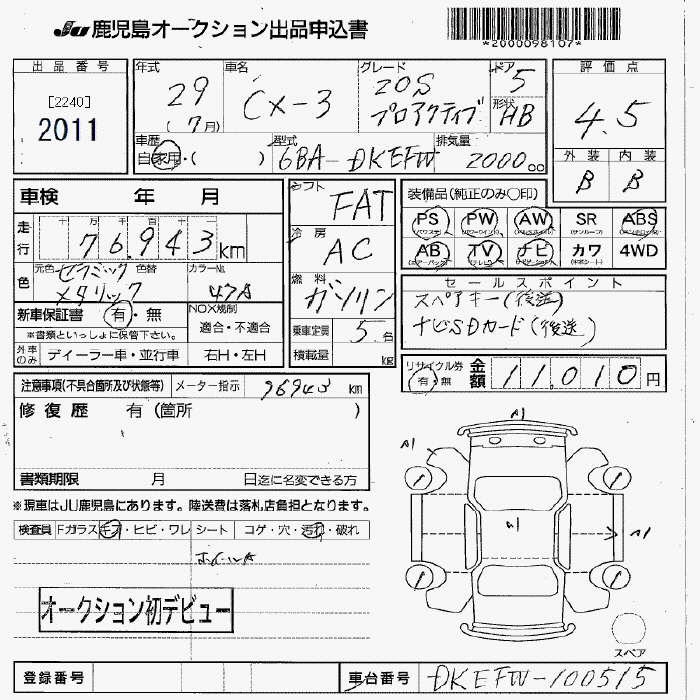 JU 鹿児島オークション出品申込書
*2000098107*
出品番号 年式 車名 グレード ドア 評価点
[2240]
2011
29 (7月) CX-3 20S プロアクティブ 5 形状 HB 4.5
車歴 自家用・( ) 型式 6BA-DKEFW 排気量 2000 cc
外装 内装
B B
車検 年 月 シフト FAT 装備品(純正のみ○印)
走行 十 万 千 百 十 76,943km
冷房 AC
PS PW AW SR ABS
(パワステ) (パワーウインド) (アルミホイル) (サンルーフ)
AB TV ナビ カワ 4WD
(エアーバッグ) (テレビ) (ナビゲーション) (革シート)
色 元色 セラミックメタリック 色替 カラーNo. 47A
燃料 ガソリン
セールスポイント
スペアキー(後送)
ナビSDカード(後送)
新車保証書 有・無 NOX規制
※書類といっしょに保管下さい。 適合・不適合
乗車定員 5名
外車のみ ディーラー車・並行車 右H・左H 積載量 kg
リサイクル券 有・無 金額 11,010円
注意事項(不具合箇所及び状態等) メーター指示 76943 km
修復歴 有 (箇所 )
書類期限 月 日迄に名変できる方
※現車はJU鹿児島にあります。陸送費は落札店負担となります。
検査員 Fガラス キズ・ヒビ・ワレ シート コゲ・穴・汚れ・破れ
A1
A1
W1
A1
オークション初デビュー
スペア
登録番号 車台番号 DKEFW-100515